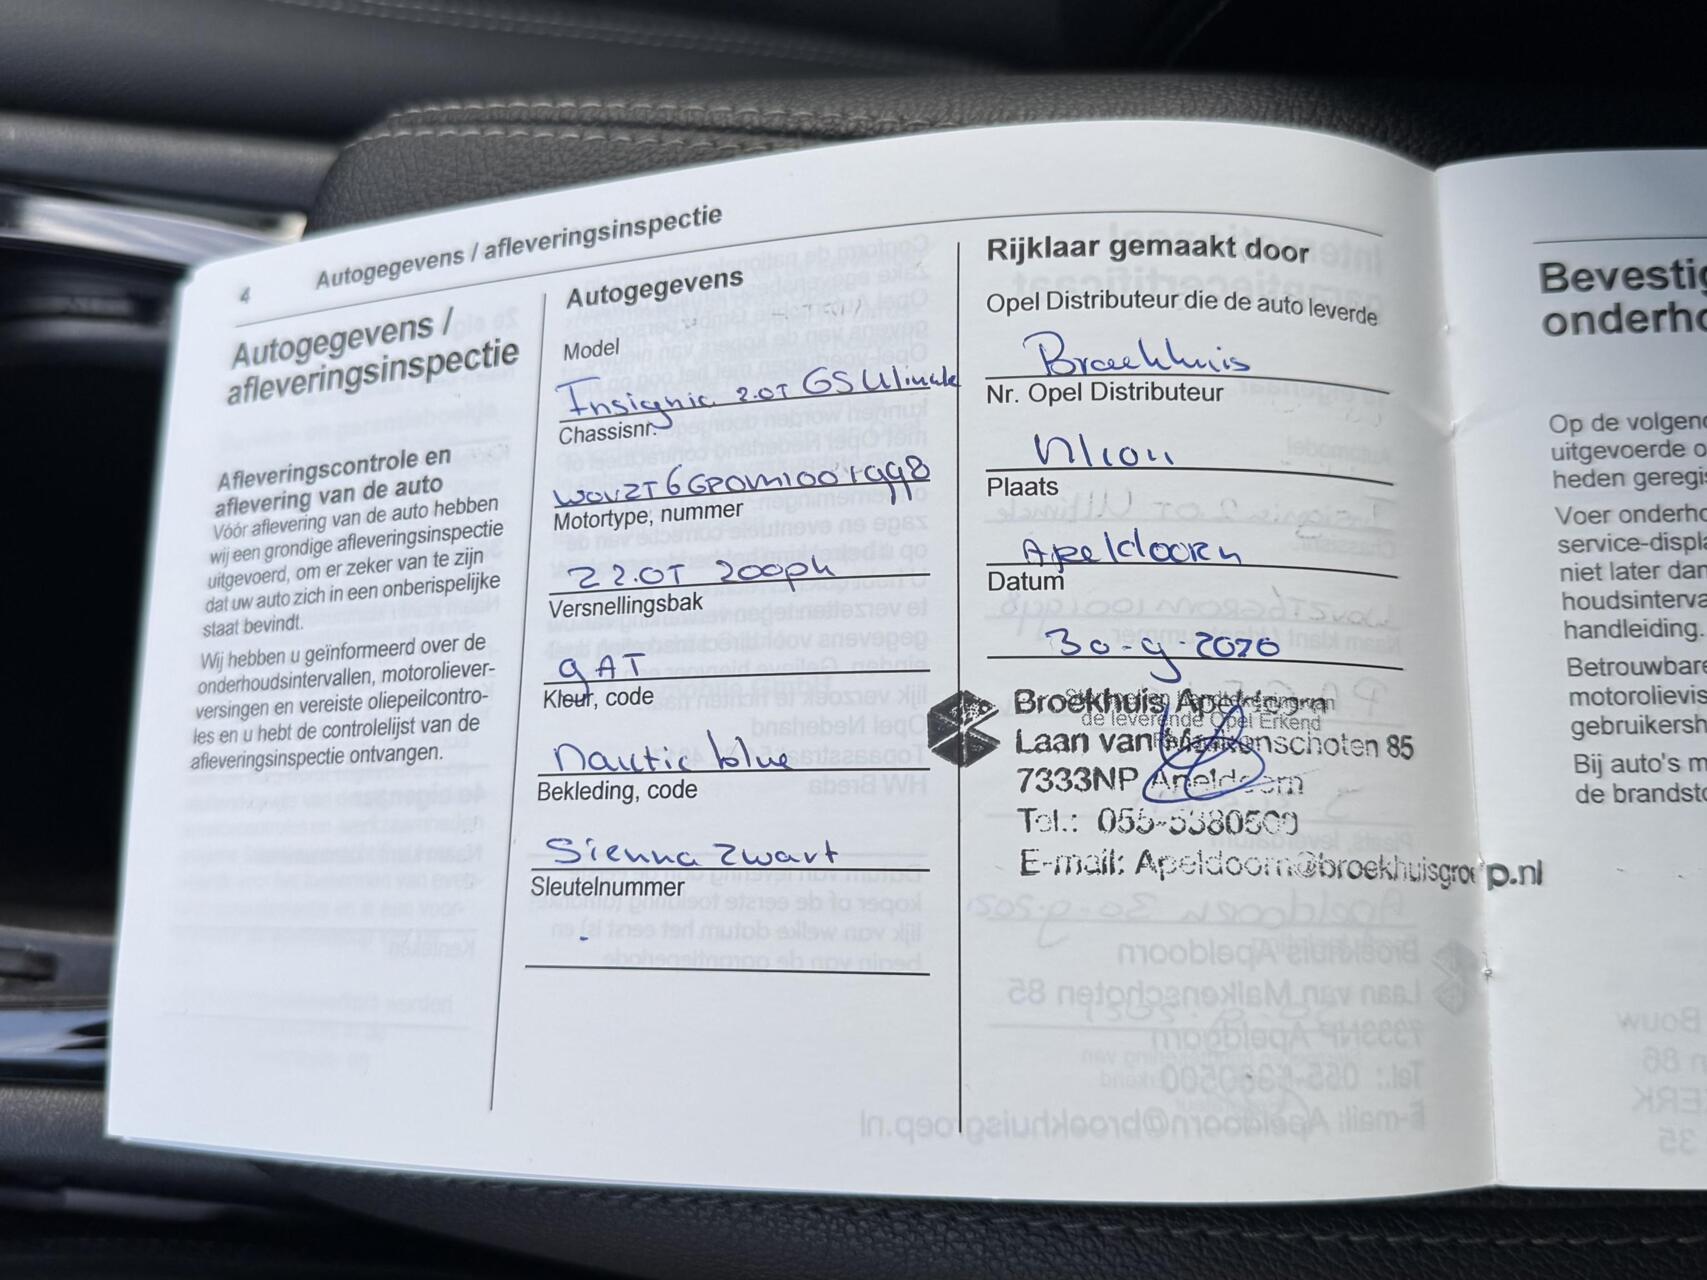 4
Autogegevens / afleveringsinspectie
Autogegevens /
afleveringsinspectie
Afleveringscontrole en
aflevering van de auto
Vóór aflevering van de auto hebben
wij een grondige afleveringsinspectie
uitgevoerd, om er zeker van te zijn
dat uw auto zich in een onberispelijke
staat bevindt.
Wij hebben u geïnformeerd over de
onderhoudsintervallen, motoroliever-
versingen en vereiste oliepeilcontro-
les en u hebt de controlelijst van de
afleveringsinspectie ontvangen.
Autogegevens
Model
Insignia 2.0T GS Ulimate
Chassisnr.
Motortype, nummer
2.0T 200pk
Versnellingsbak
9AT
Kleur, code
Nautic blue
Bekleding, code
Sienna Zwart
Sleutelnummer
Rijklaar gemaakt door
Opel Distributeur die de auto leverde
Broekhuis
Nr. Opel Distributeur
Plaats
Apeldoorn
Datum
30-9-2020
Broekhuis Apeldoorn
de leverende Opel Erkend
Laan van Malkenschoten 85
7333NP Apeldoorn
Tel.:
E-mail: Apeldoorn@broekhuisgroep.nl
Bevestig
onderho
Op de volgend
uitgevoerde o
heden geregis
Voer onderho
service-displa
niet later dan
houdsinterva
handleiding.
Betrouwbare
motorolievis
gebruikersh
Bij auto's m
de brandsto